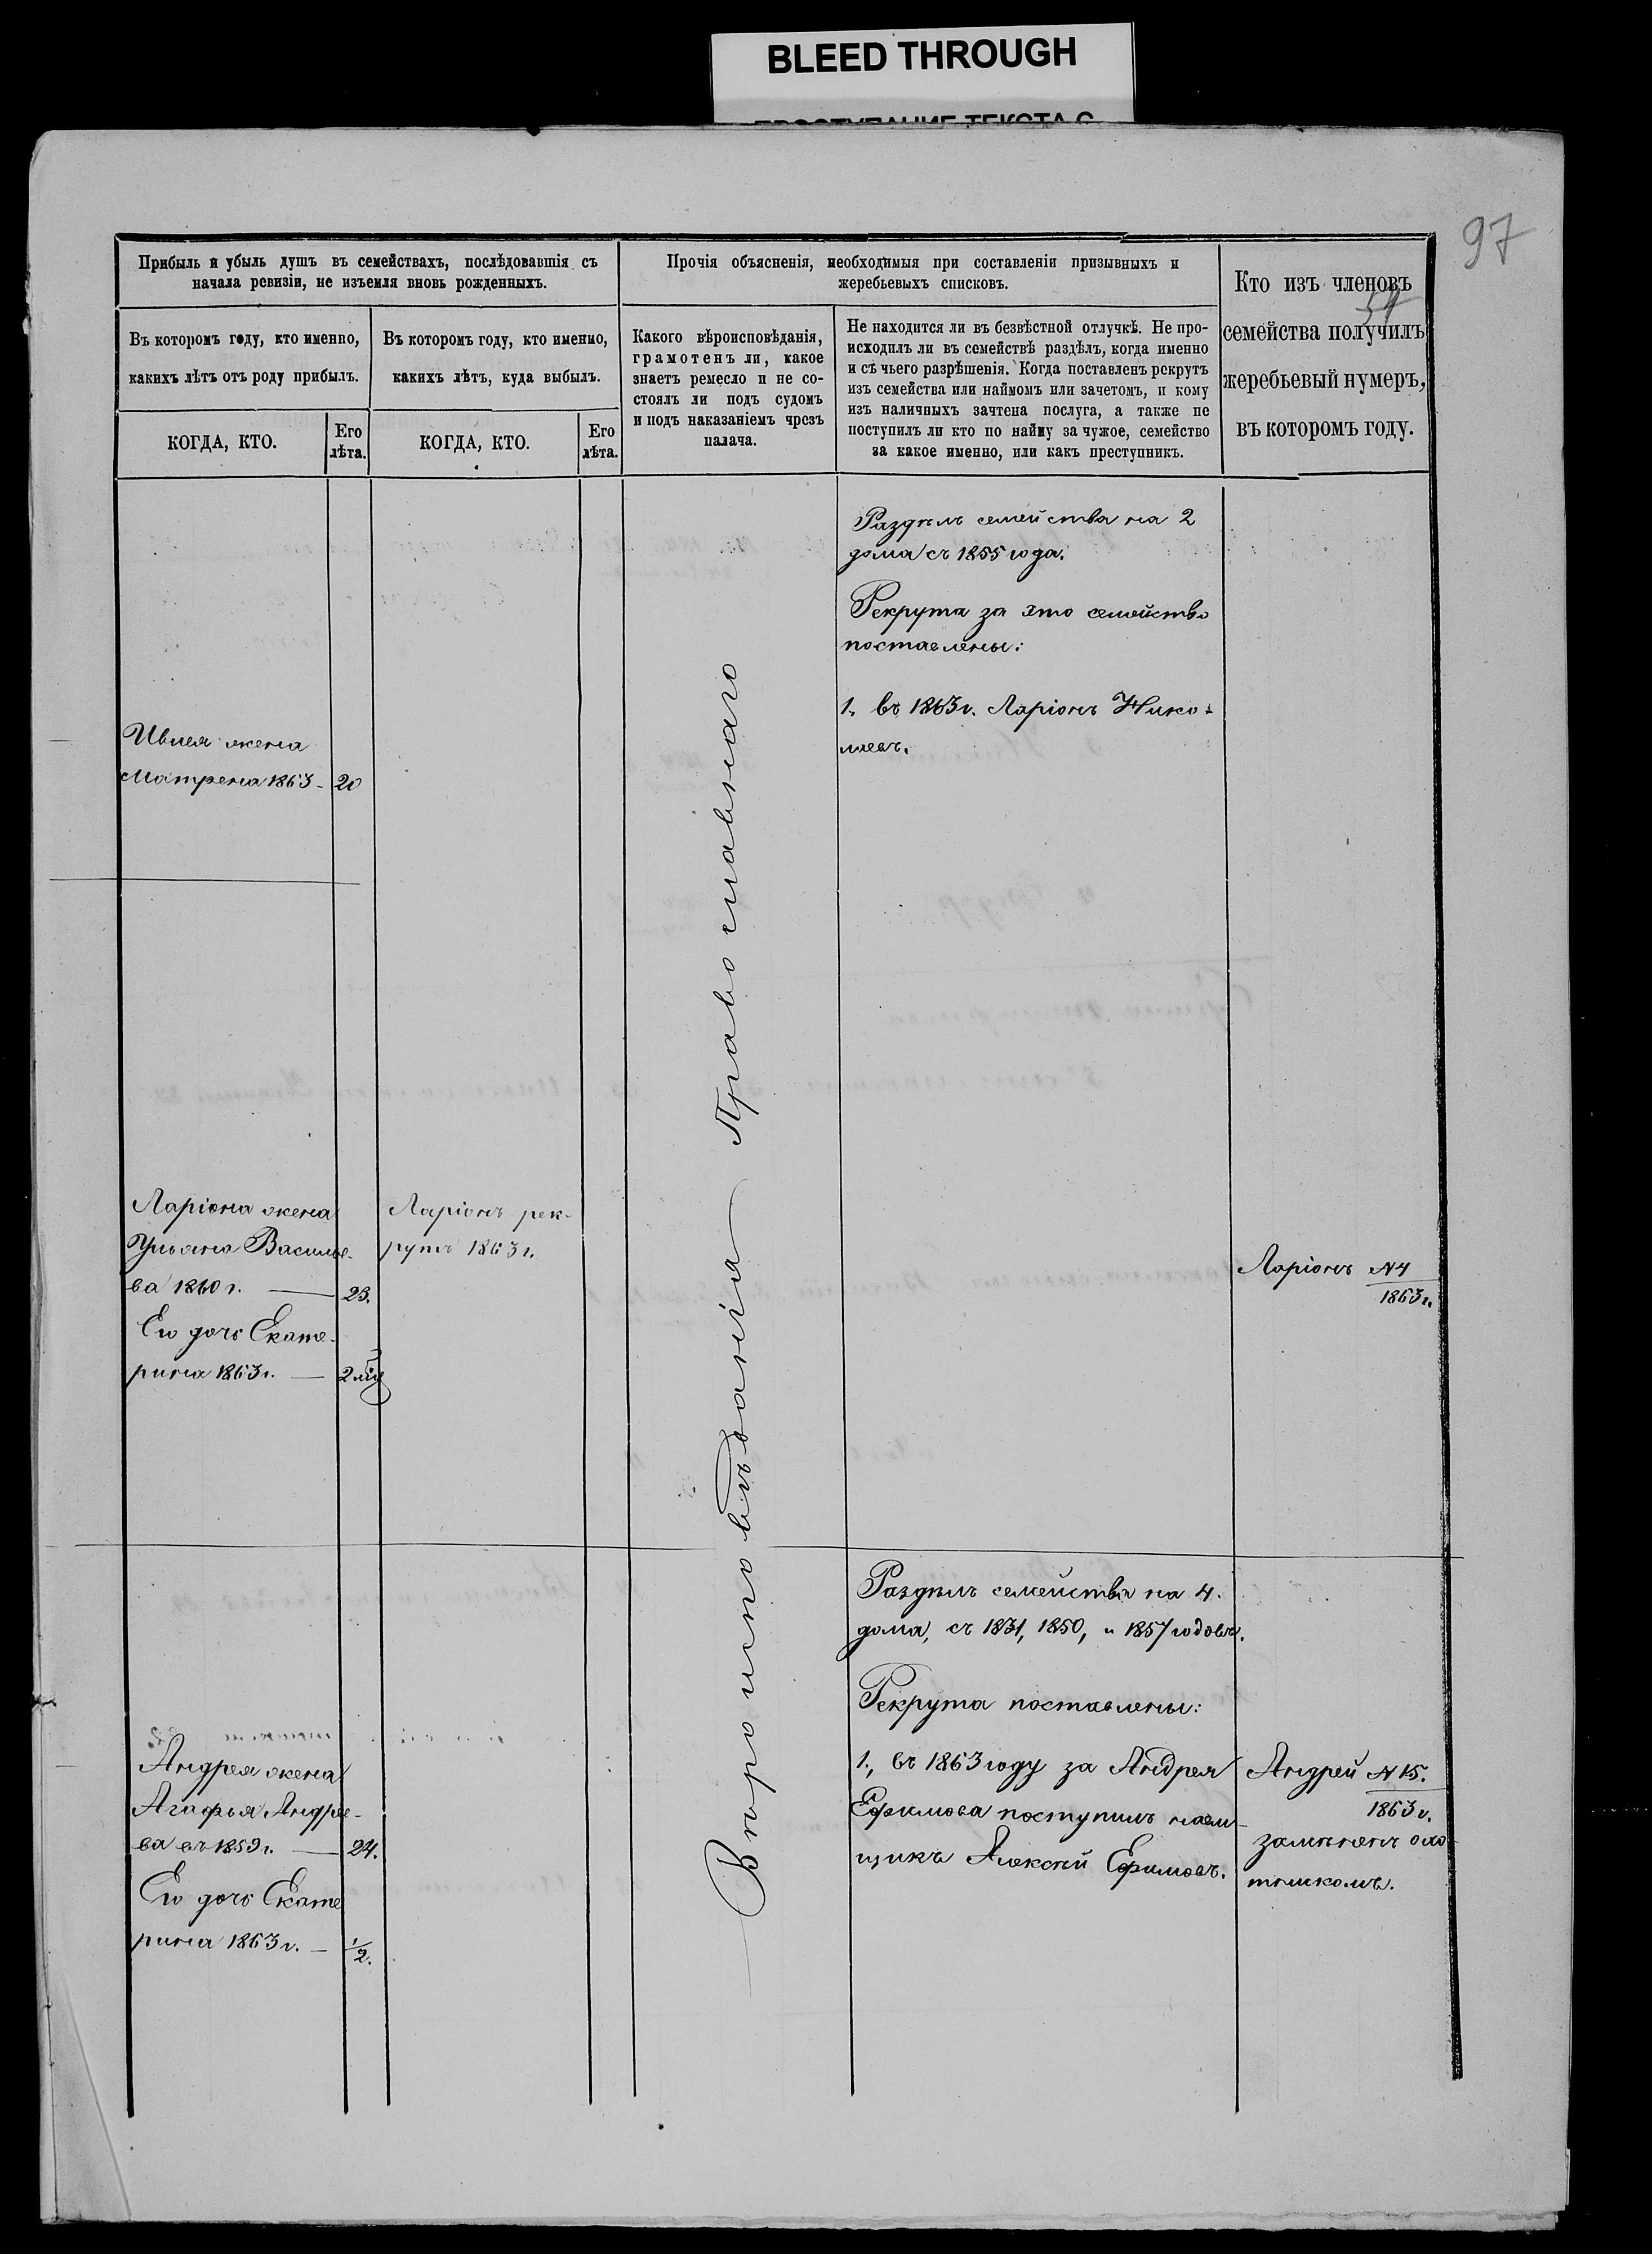 BLEED THROUGH
97
54
Прибыль и убыль душъ въ семействахъ, послѣдовавшія съ
начала ревизіи, не изъемля вновь рожденныхъ.
Въ которомъ году, кто именно,
какихъ лѣтъ отъ роду прибылъ.
КОГДА, КТО.
Его
лѣта.
Въ которомъ году, кто именно,
какихъ лѣтъ, куда выбылъ.
КОГДА, КТО.
Его
лѣта.
Прочія объясненія, необходимыя при составленіи призывныхъ и
жеребьевыхъ списковъ.
Какого вѣроисповѣданія,
грамотенъ ли, какое
знаетъ ремесло и не со-
стоялъ ли подъ судомъ
и подъ наказаніемъ чрезъ
палача.
Не находится ли въ безвѣстной отлучкѣ. Не про-
исходилъ ли въ семействѣ раздѣлъ, когда именно
и съ чьего разрѣшенія. Когда поставленъ рекрутъ
изъ семейства или наймомъ или зачетомъ, и кому
изъ наличныхъ зачтена послуга, а также не
поступилъ ли кто по найму за чужое, семейство
за какое именно, или какъ преступникъ.
Кто изъ членовъ
семейства получилъ
жеребьевый нумеръ,
въ которомъ году.
Раздѣлъ семейства на 2
дома съ 1855 года.
Рекрута за это семейство
поставлены:
1, въ 1863 г. Ларіонъ Нико-
лаевъ.
жена
Матрена 1863 - 20
Вѣроисповѣданія Православнаго
Ларіона жена
Ульяна Василье-
ва 1860 г. — 23.
Его дочь Екате-
рина 1863 г. — 2
Ларіонъ рек-
рутъ 1863 г.
Ларіонъ N4
1863 г.
Раздѣлъ семейства на 4.
дома, съ 1831, 1850, и 1857 годовъ.
Рекрута поставлены:
1, въ 1863 году за Андрея
Ефимова поступилъ наем-
щикъ Алексѣй Ефимовъ.
Андрея жена
Агафья Андрее-
ва въ 1859 г. — 24.
Его дочь Екате
рина 1863 г. — 1/2.
Андрей N 15.
1863 г.
замѣненъ охо-
тникомъ.